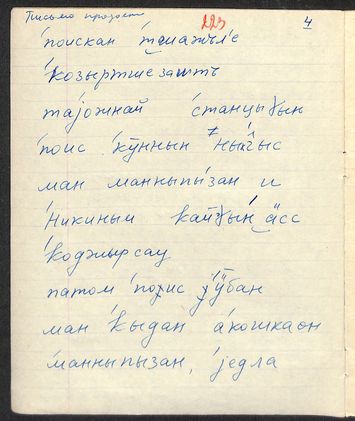 Письмо прозост
223
4
'поискан 'тӓмажъл'е
'козыртшезашть
тајожнай 'станцыɣын
'поис 'кӯннын 'ны́гыс
ман манныпы́зан и
'никиным кайɣы́н ӓсс
'коджырсау
патом 'поис 'ӱӱбан
ман 'кыдан а́кошкаон
'манныпызан, 'једла